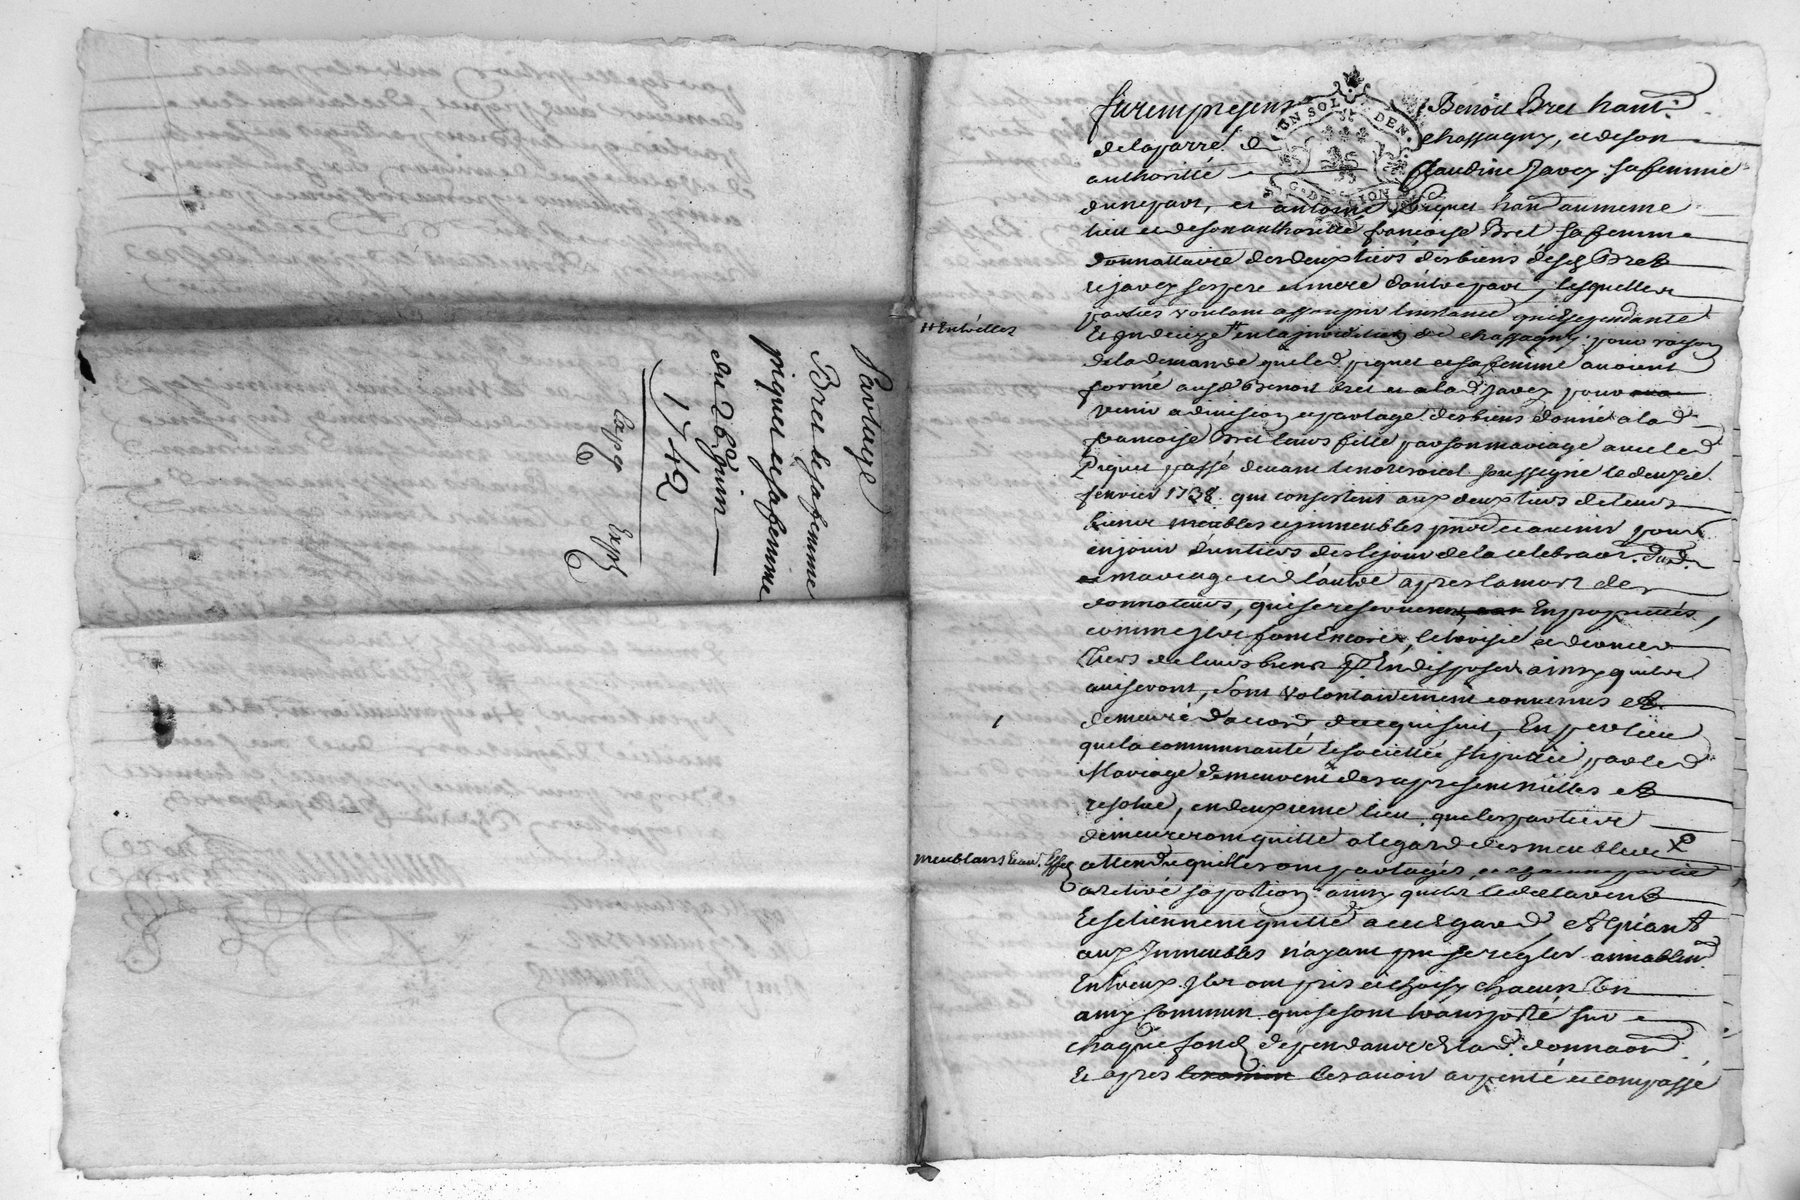 Partage
Bret et sa femme
piquet et sa femme
du 26 juin
1742
Expé
furent presens Benoit Bret hant.
de la parre. de chassagny, et de son
authoritté Claudine Javey sa femme
d'une part, et antoine Piquet hant au meme
lieu et de son authoritté francoise Bret sa femme
donnattaire des deux tiers des biens desd. Bret
et javey ses pere et mere d'autre part, lesquelles
parties voulant assoupir l'instance qui est pendante
Et Indecize # en la jurisdiction de chassagny pour raison
# Entr'elles
de la demande que led. piquet et sa femme avoient
formé aud. Benoit bret et a la d. Javey pour
venir a division et partage des biens donné a lad.
francoise Bret leurs fille par son mariage avec led.
Piquet passé devant le nore royal soussigné le deuxe.
fevrier 1738. qui consistent aux deux tiers de leurs
biens meubles et immeubles pnts et avenir pour
en jouir d'un tiers des le jour de la celebraon. dud.
mariage et de l'autre apres la mort des
donnateurs, qui se reserverent En proprietté,
comme Ils font Encore, le troisie et dernier
tiers de leurs biens pr En disposer ainsy qu'ils
aviseront, Sont volontairement convenus et
demeuré d'accord de ce qui suit, En per lieu
que la communauté et societtée stipullée par led.
Mariage demeurent des a present nulles et
resolue, en deuxieme lieu que les parties
demeureront quitte a l'egard des meubles
meublans Et au. Effes
attendu qu'ils les ont partagés, et chacune partie
a retiré sa portion ainsy qu'ils le declarent
Et se tiennent quitte a cet egard Et quant
aux Immeubles n'ayant pu se regler aimablemt
Entr'eux Ils ont pris et choisy chacun Un
amy commun qui se sont transporté sur
chaque fond dependant de lad. donnaon.
Et apres les avoir arpenté et compassé